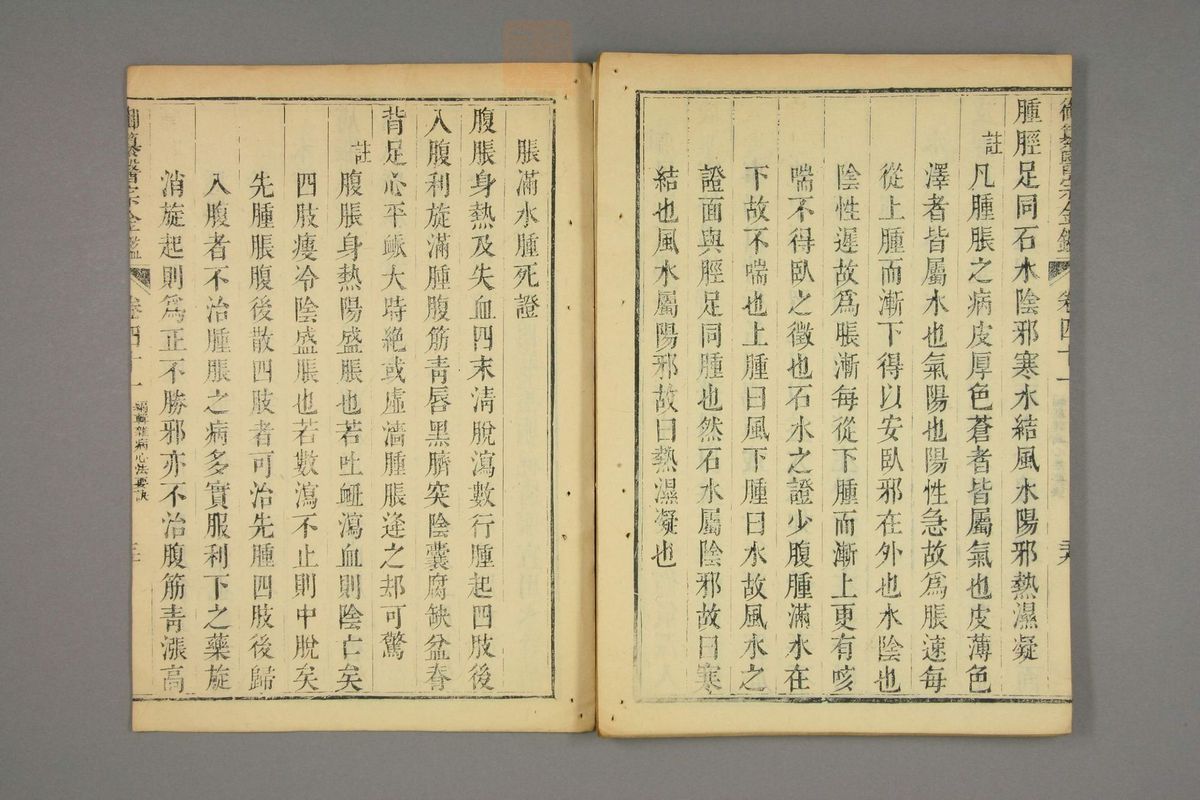 御纂醫宗金鑑 卷四十一
腫脛足同石水陰邪寒水結風水陽邪熱濕凝
註
凡腫脹之病皮厚色蒼者皆屬氣也皮薄色
澤者皆屬水也氣陽也陽性急故爲脹速每
從上腫而漸下得以安臥邪在外也水陰也
陰性遲故爲脹漸每從下腫而漸上更有咳
喘不得臥之徵也石水之證少腹腫滿水在
下故不喘也上腫曰風下腫曰水故風水之
證面與脛足同腫也然石水屬陰邪故曰寒
結也風水屬陽邪故曰熱濕凝也
脹滿水腫死證
腹脹身熱及失血四末淸脫瀉數行腫起四肢後
入腹利旋滿腫腹筋靑唇黑臍突陰囊腐缺盆脊
背足心平鹹大時絕或虛濇腫脹逢之却可驚
註
腹脹身熱陽盛脹也若吐衄瀉血則陰亡矣
四肢瘦冷陰盛脹也若數瀉不止則中脫矣
先腫脹腹後散四肢者可治先腫四肢後歸
入腹者不治腫脹之病多實服利下之藥旋
消旋起則爲正不勝邪亦不治腹筋靑漲高
御纂醫宗金鑑 卷四十一 編輯雜病心法要訣